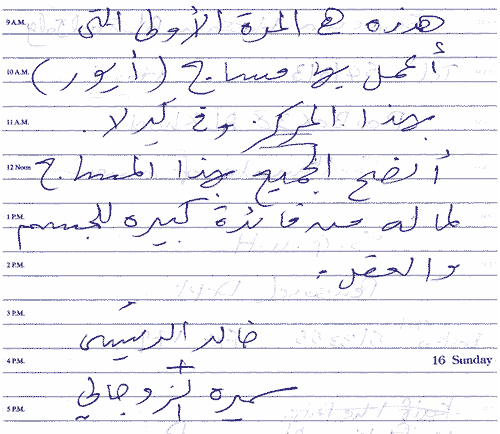 9 A.M. هذه هي المرة الأولى التي
10 A.M. أعمل بها مساج (أيور)
11 A.M. بهذا المركز وفي كيرلا.
12 Noon أنصح الجميع بهذا المساج
1 P.M. لما له من فائدة كبيرة للجسم
2 P.M. والعقل.
3 P.M. خالد الريسي
4 P.M. + 16 Sunday
5 P.M. سميرة الزدجالي